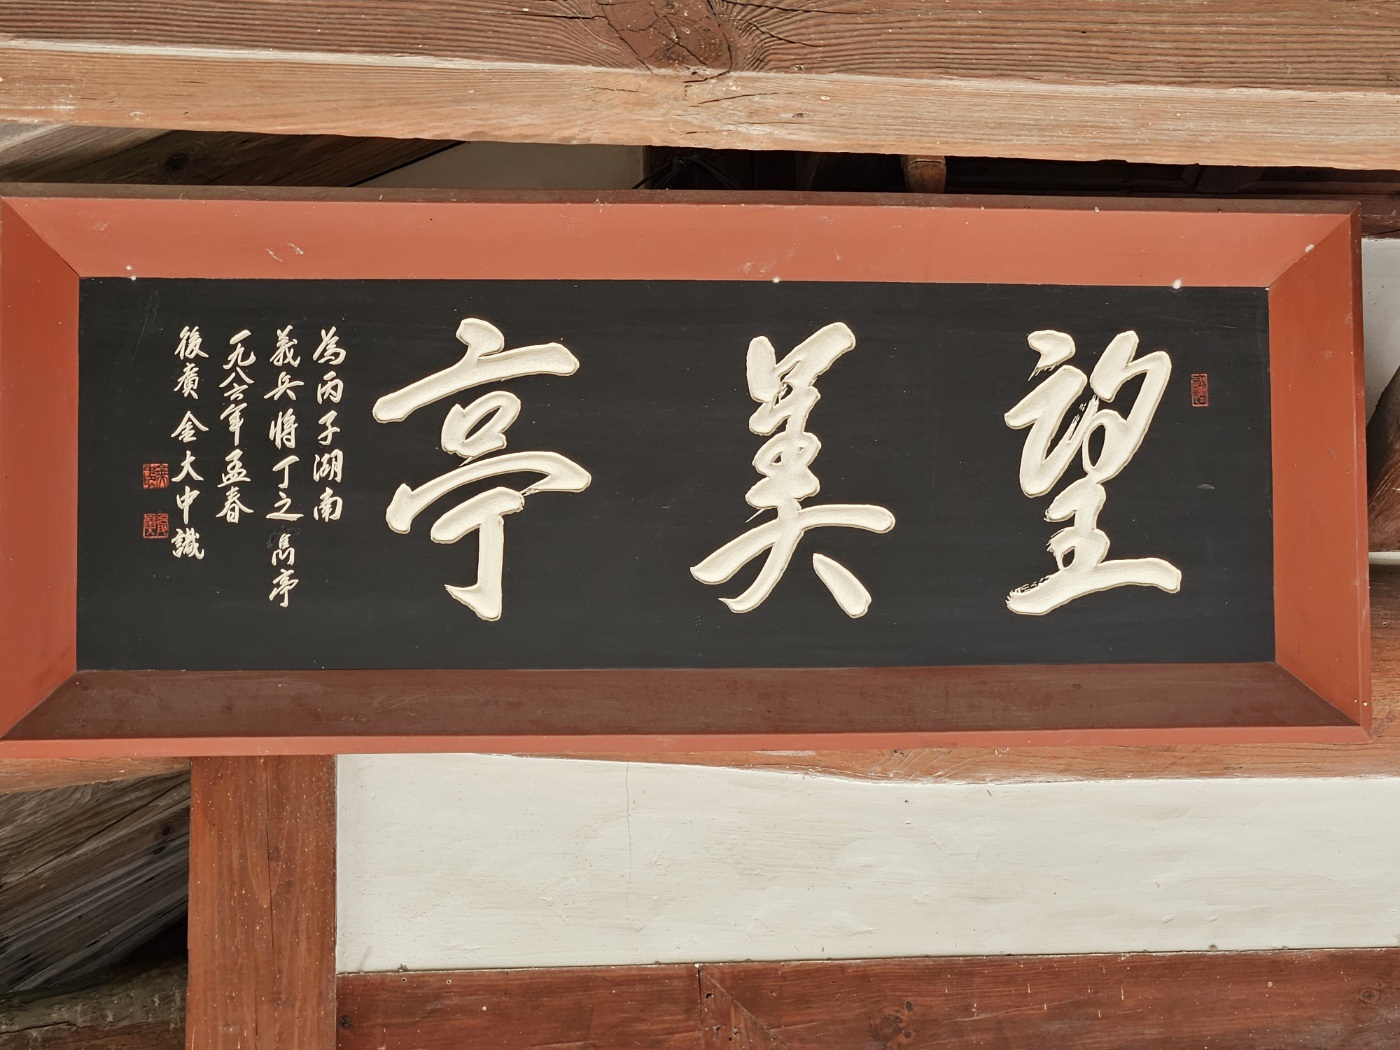 望美亭
為丙子湖南
義兵將丁之雋亭
一九八六年孟春
後廣金大中識